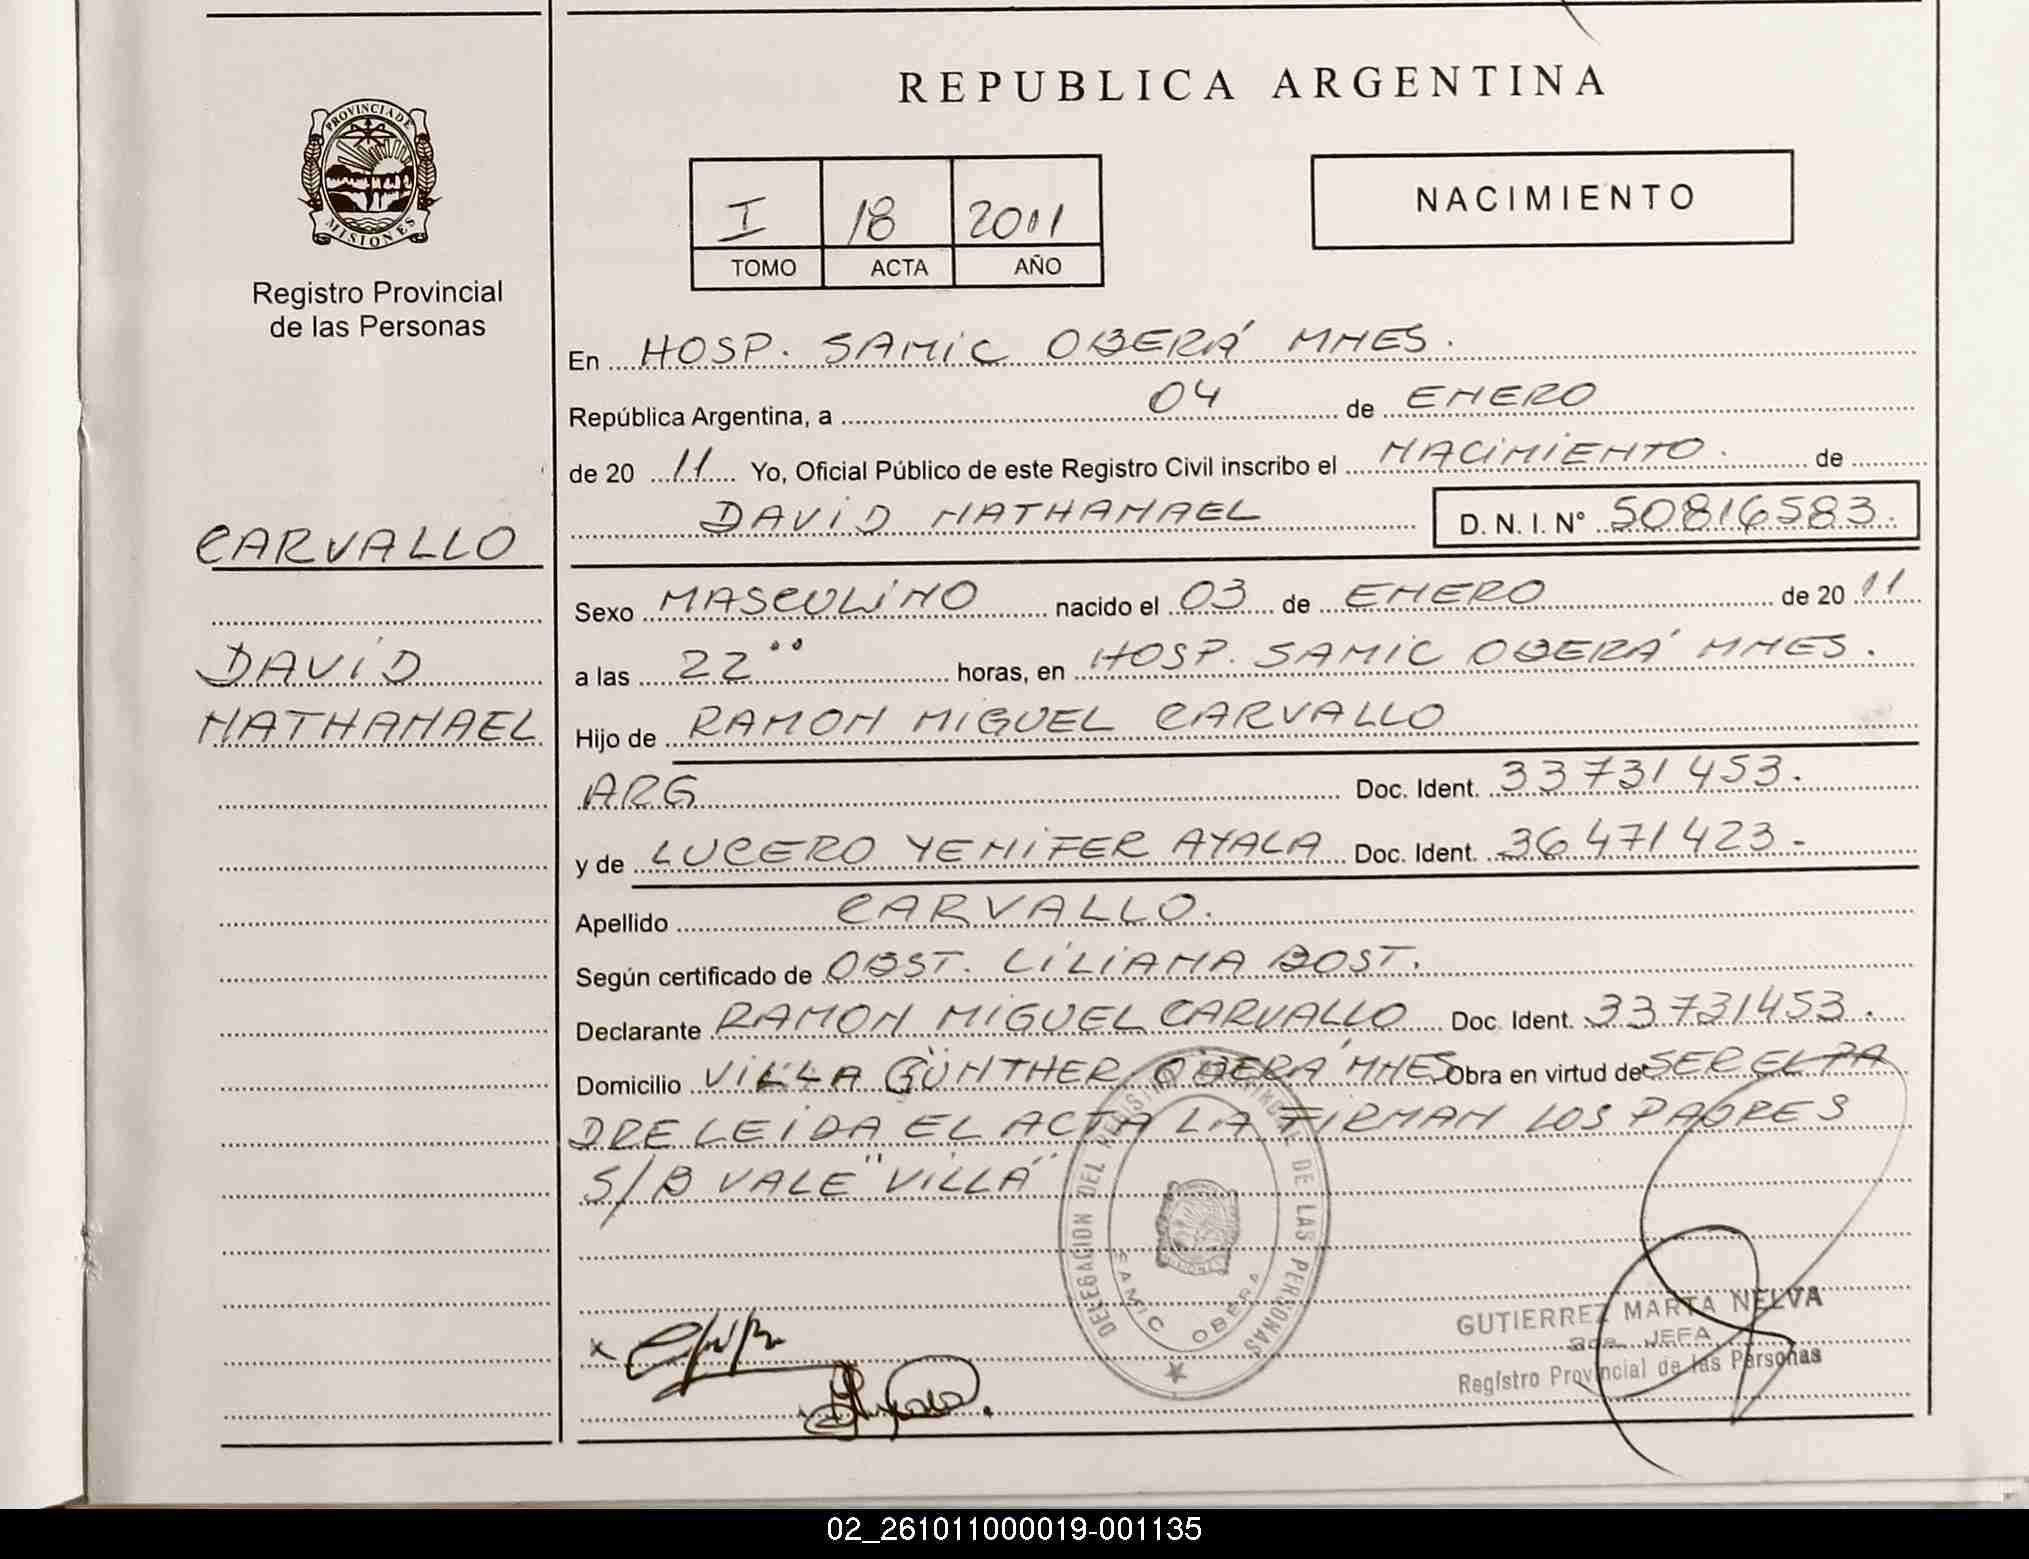 REPUBLICA ARGENTINA
PROVINCIA DE
MISIONES
Registro Provincial
de las Personas
I 18 2011
TOMO ACTA AÑO
NACIMIENTO
En HOSP. SAMIC OBERÁ MNES.
República Argentina, a 04 de ENERO
de 20 11 Yo, Oficial Público de este Registro Civil inscribo el NACIMIENTO. de
DAVID NATHANAEL D. N. I. N° 50816583.
CARVALLO
DAVID
NATHANAEL
Sexo MASCULINO nacido el 03 de ENERO de 20 11
a las 22⁰⁰ horas, en HOSP. SAMIC OBERÁ MNES.
Hijo de RAMON MIGUEL CARVALLO
ARG Doc. Ident. 33731453.
y de LUCERO YENIFER AYALA Doc. Ident. 36471423-
Apellido CARVALLO.
Según certificado de OBST. LILIANA BOST.
Declarante RAMON MIGUEL CARVALLO Doc. Ident. 33731453.
Domicilio VILLA GÜNTHER OBERÁ MNES Obra en virtud de SER EL PA
DRE LEIDA EL ACTA LA FIRMAN LOS PADRES
S/B VALE "VILLA"
DELEGACION DEL REGISTRO DE LAS PERSONAS
SAMIC OBERA
GUTIERREZ MARTA NELVA
JEFA
Registro Provincial de las Personas
02_261011000019-001135